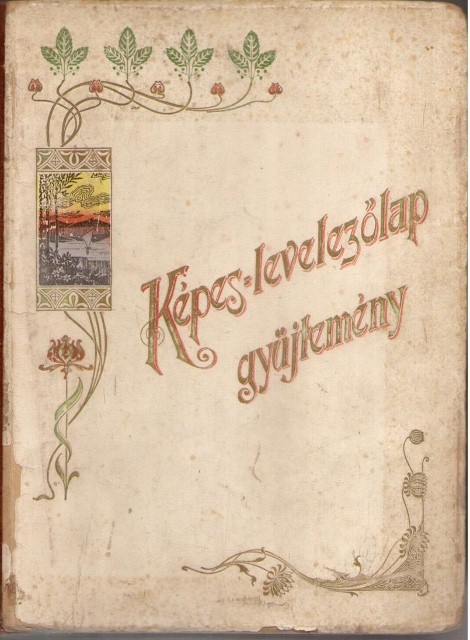 Képes-levelezőlap
gyüjtemény